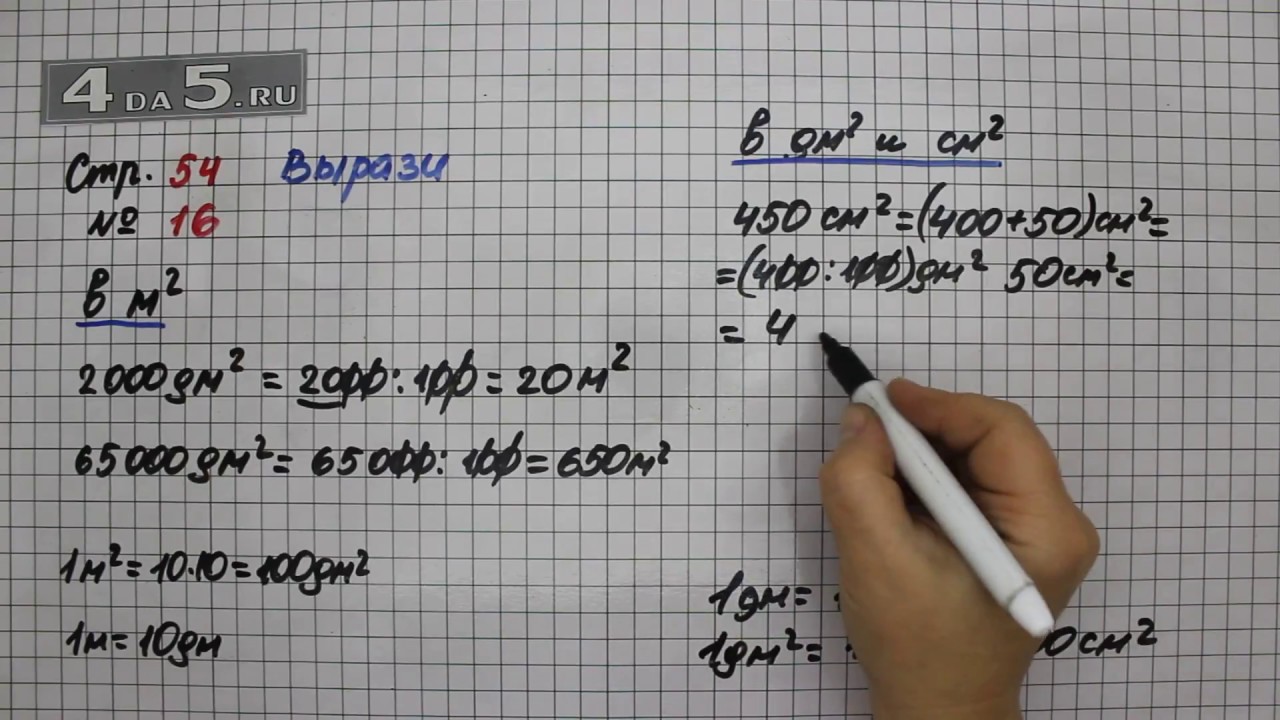 4 DA 5.RU
Стр. 54 Вырази
№ 16
в м²
2000дм² = 2000:100 = 20м²
65000дм² = 65000:100 = 650м²
1м² = 10·10 = 100дм²
1м = 10дм
в дм² и см²
450 см² = (400+50)см² =
= (400:100)дм² 50см² =
= 4
1дм =
1дм² = 0см²